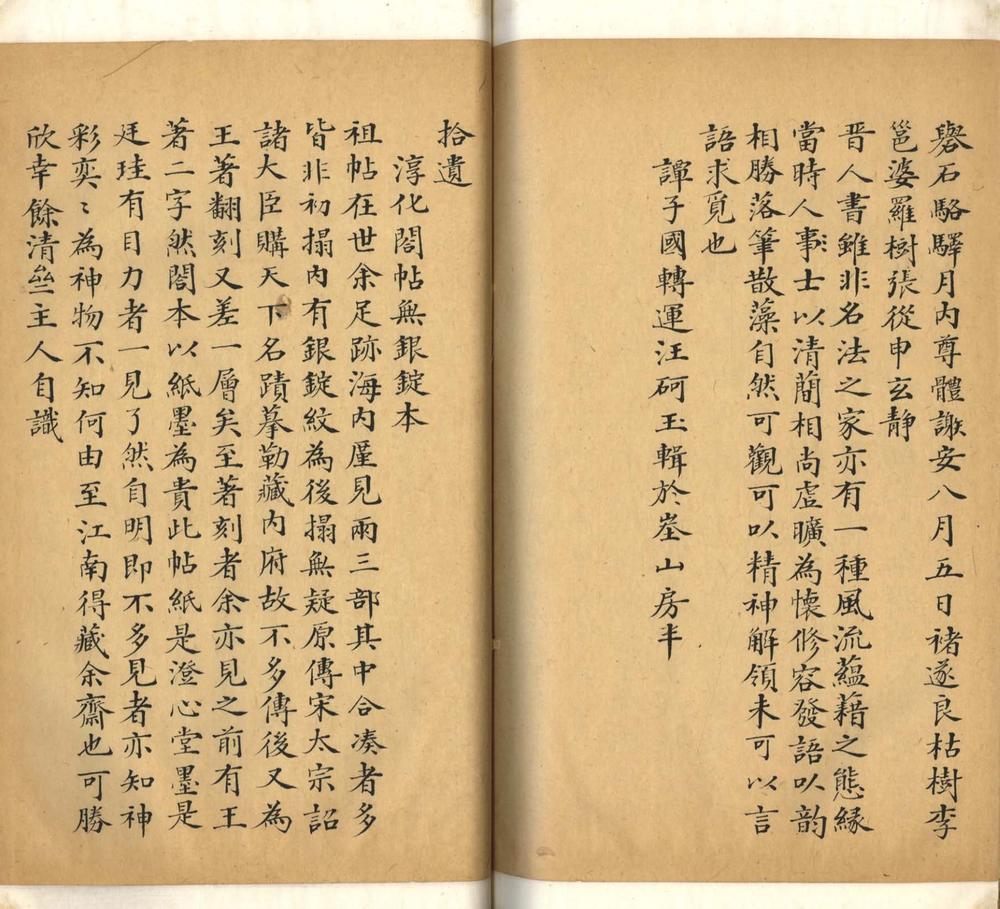 礜石駱驛月內尊體謝安八月五日褚遂良枯樹李
邕婆羅樹張從申玄靜
晋人書雖非名法之家亦有一種風流蘊藉之態緣
當時人事士以清蕳相尚虛曠為懷修容發語以韵
相勝落筆散藻自然可觀可以精神解領未可以言
語求覓也
譚子國轉運汪砢玉輯於崟山房半
拾遺
淳化閣帖無銀錠本
祖帖在世余足跡海內厪見兩三部其中合凑者多
皆非初搨內有銀錠紋為後搨無疑原傳宋太宗詔
諸大臣購天下名蹟摹勒藏內府故不多傳後又為
王著翻刻又差一層矣至著刻者余亦見之前有王
著二字然閣本以紙墨為貴此帖紙是澄心堂墨是
廷珪有目力者一見了然自明即不多見者亦知神
彩奕〻為神物不知何由至江南得藏余齋也可勝
欣幸餘清主人自識